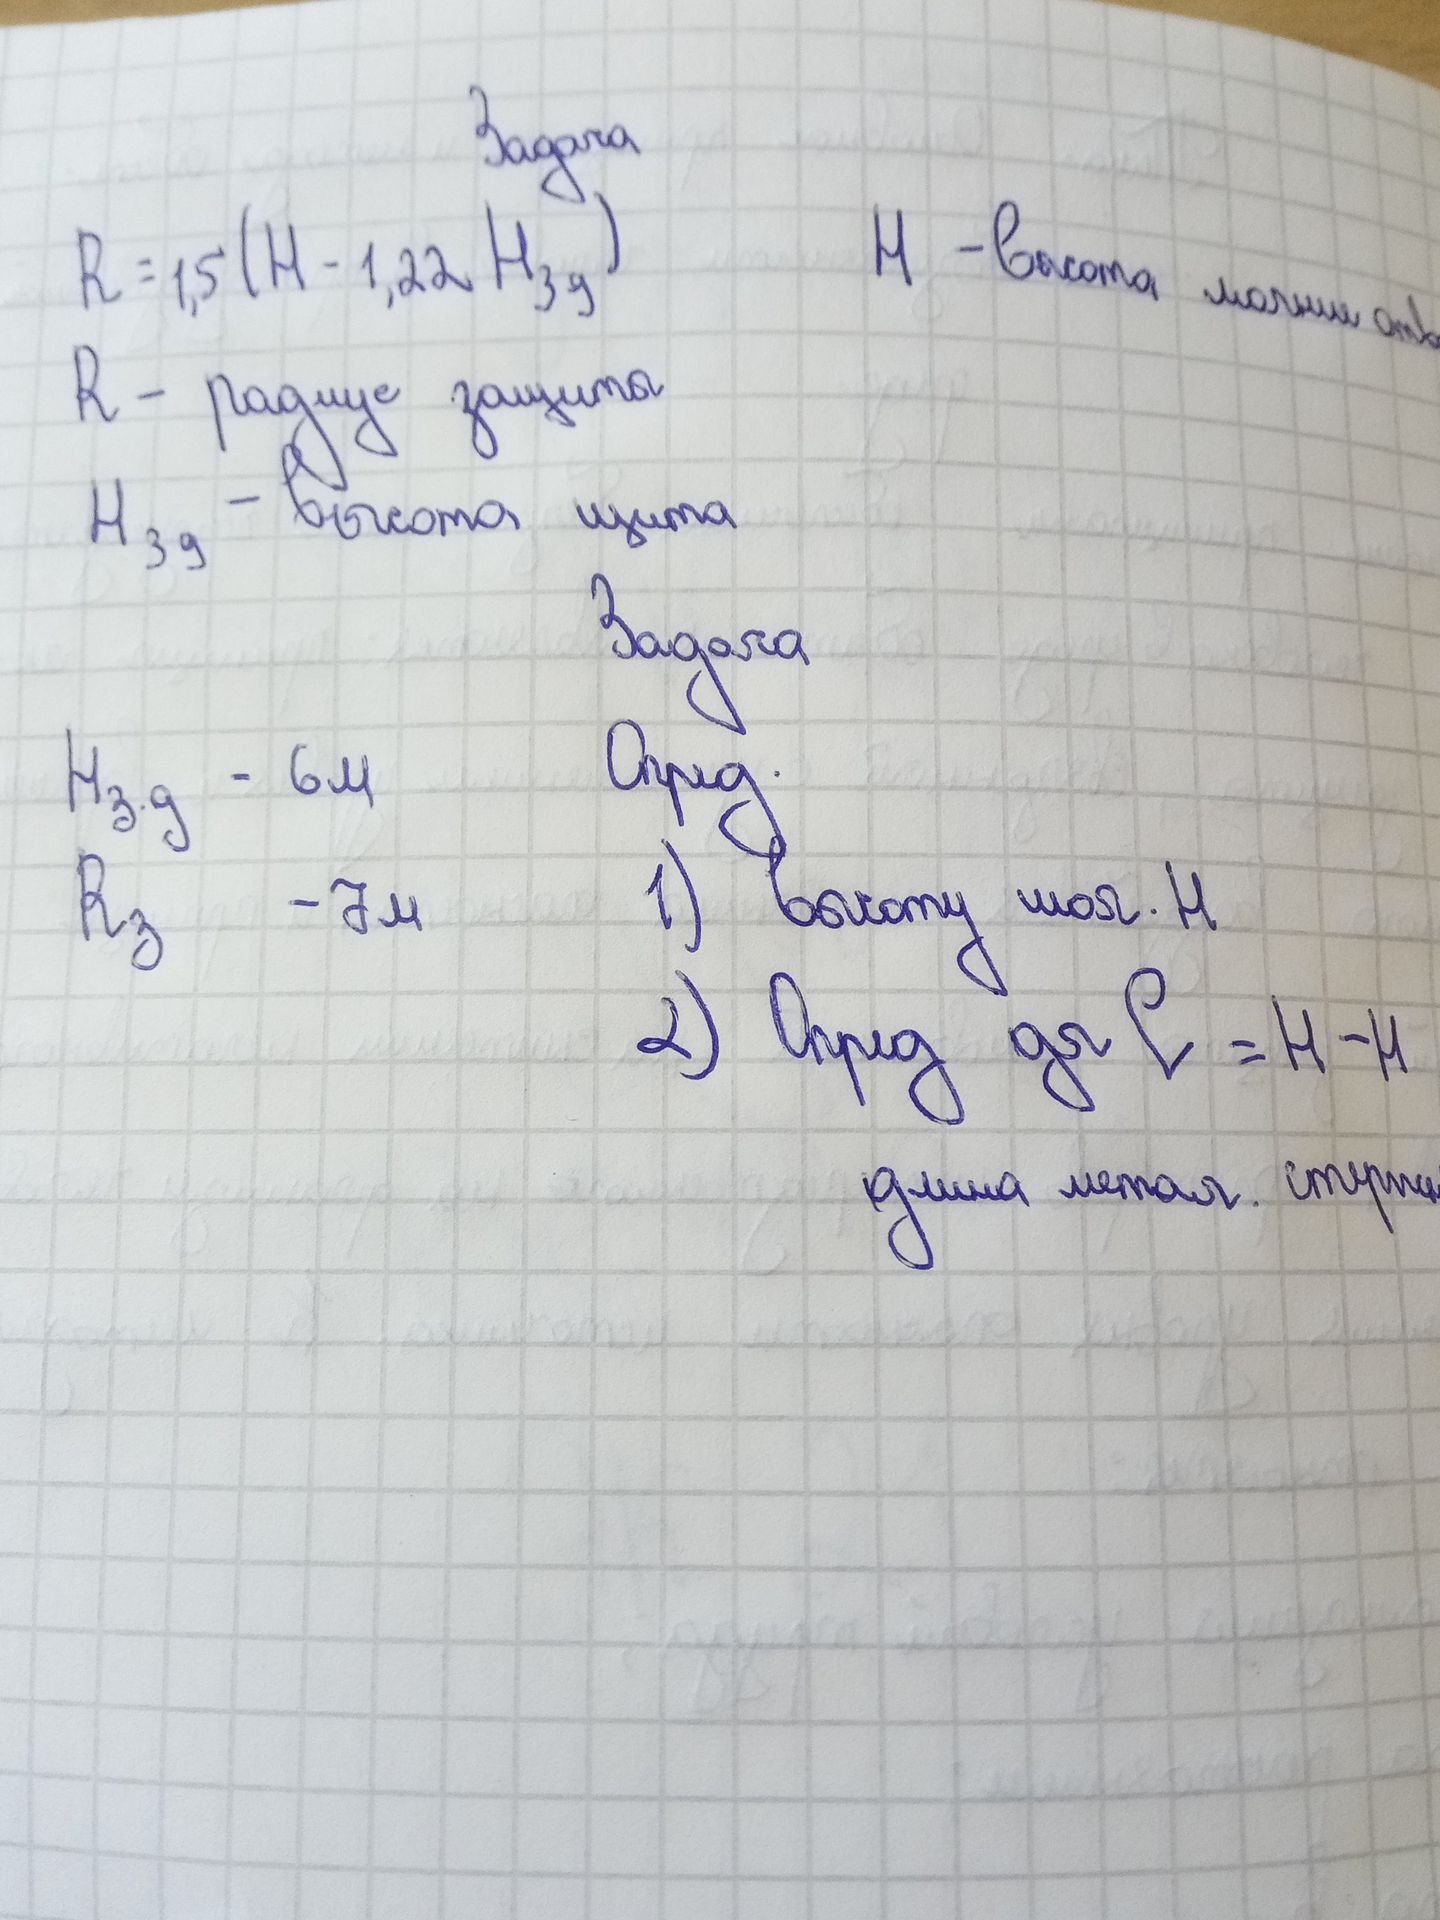 Задача
R = 1,5 (H - 1,22 Hзд)
H - высота молние
R - радиус защиты
Hзд - высота щита
Задача
Hз.д - 6м
Опред.
Rз - 7м
1) Высоту мол. H
2) Опред дл = H - H
длина метал.